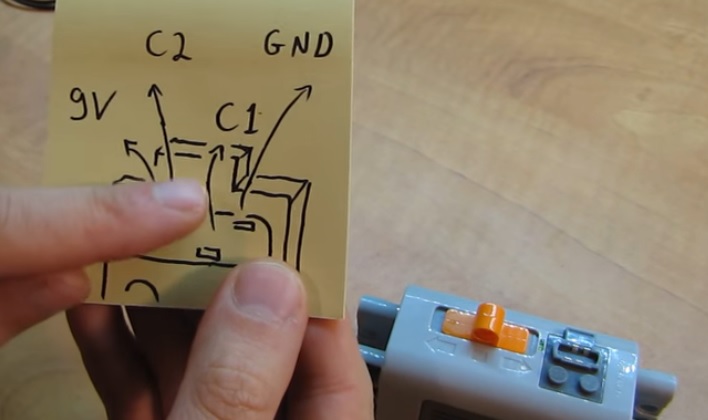 C2
GND
9V
C1